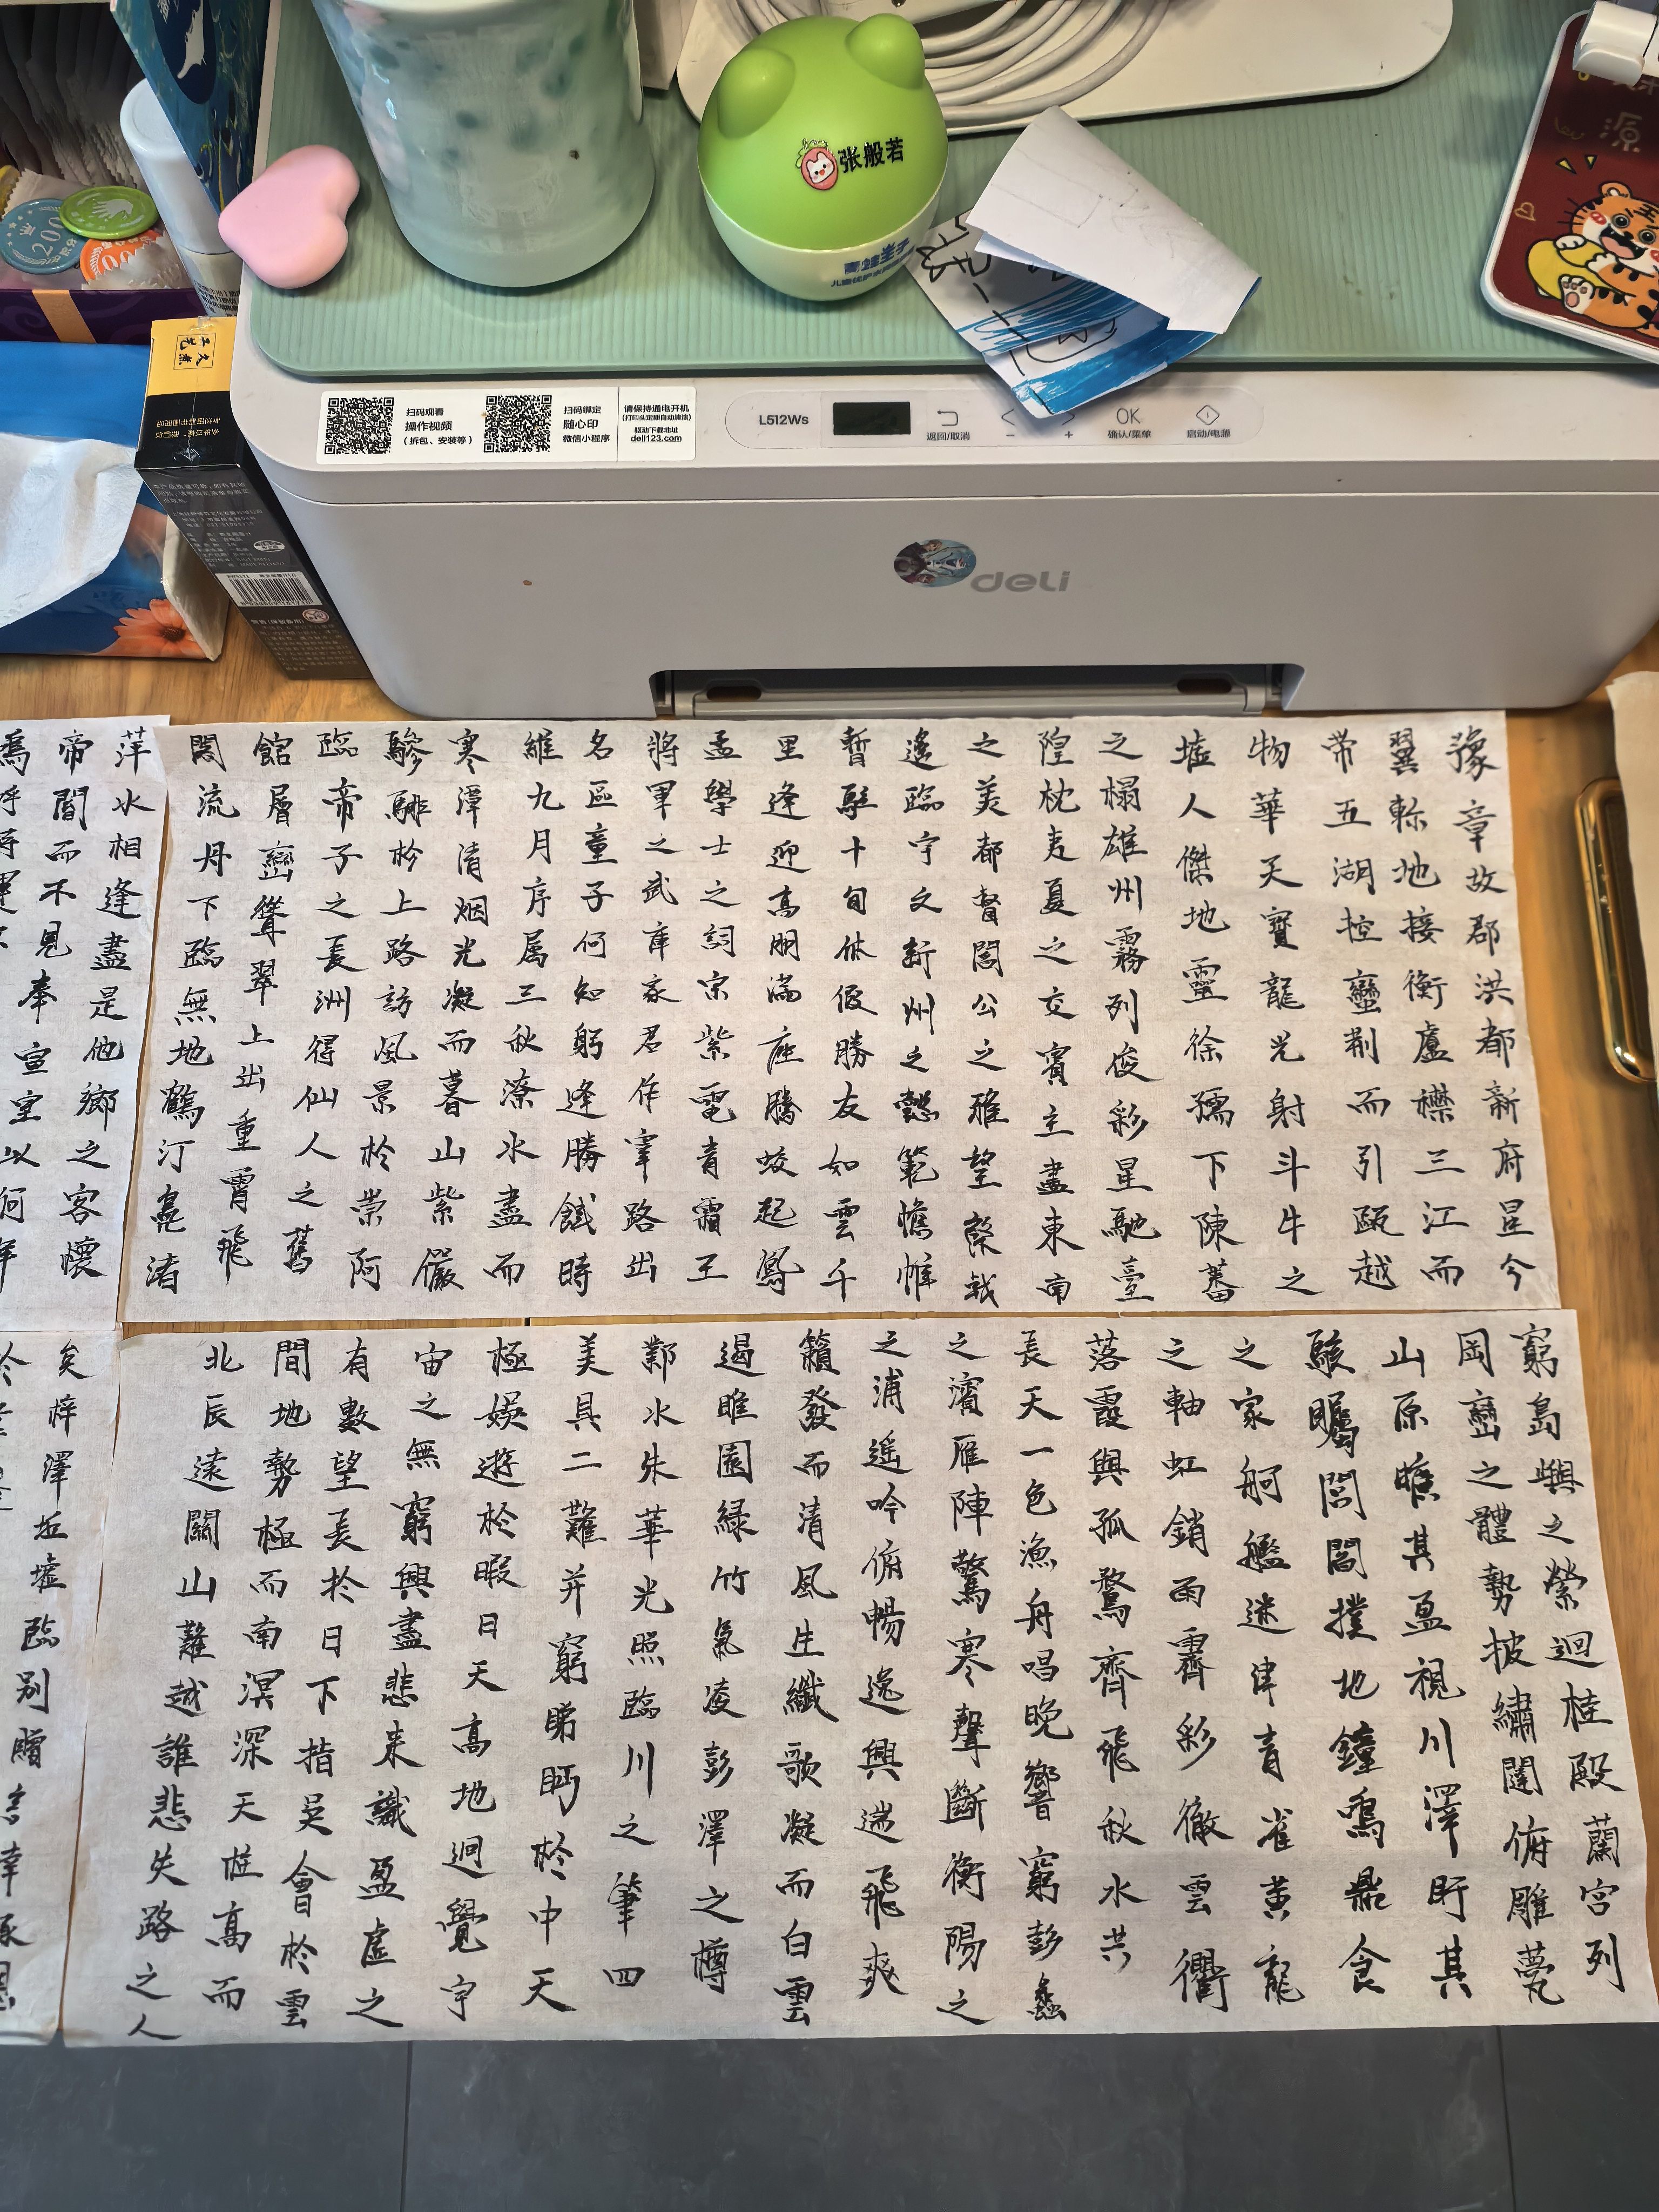 张般若
青蛙王子
源
久煮
L512Ws
扫码观看
操作视频
(拆包、安装等)
扫码绑定
随心印
微信小程序
请保持通电开机
(打印头定期自动清洁)
驱动下载地址
deli123.com
返回/取消
OK
确认/菜单
启动/电源
deli
豫章故郡洪都新府星今
翼軫地接衡廬襟三江而
帶五湖控蠻荆而引甌越
物華天寶龍光射斗牛之
墟人傑地靈徐孺下陳蕃
之榻雄州霧列俊彩星馳臺
隍枕夷夏之交賓主盡東南
之美都督閻公之雅望棨戟
遙臨宇文新州之懿範襜帷
暫駐十旬休假勝友如雲千
里逢迎高朋滿座騰蛟起鳳
孟學士之詞宗紫電青霜王
將軍之武庫家君作宰路出
名區童子何知躬逢勝餞時
維九月序屬三秋潦水盡而
寒潭清烟光凝而暮山紫儼
驂騑於上路訪風景於崇阿
臨帝子之長洲得仙人之舊
館層巒聳翠上出重霄飛
閣流丹下臨無地鶴汀鳧渚
萍水相逢盡是他鄉之客懷
帝閽而不見奉宣室以何年
窮島嶼之縈迴桂殿蘭宮列
岡巒之體勢披繡闥俯雕甍
山原曠其盈視川澤盱其
駭矚閭閻撲地鐘鳴鼎食
之家舸艦迷津青雀黃龍
之軸虹銷雨霽彩徹雲衢
落霞與孤鶩齊飛秋水共
長天一色漁舟唱晚響窮彭蠡
之濱雁陣驚寒聲斷衡陽之
之浦遙吟俯暢逸興遄飛爽
籟發而清風生纖歌凝而白雲
遏睢園綠竹氣凌彭澤之樽
鄴水朱華光照臨川之筆四
美具二難并窮睇眄於中天
極娛遊於暇日天高地迥覺宇
宙之無窮興盡悲來識盈虛之
有數望長於日下指吳會於雲
間地勢極而南溟深天柱高而
北辰遠關山難越誰悲失路之人
矣梓澤丘墟臨別贈言幸承恩